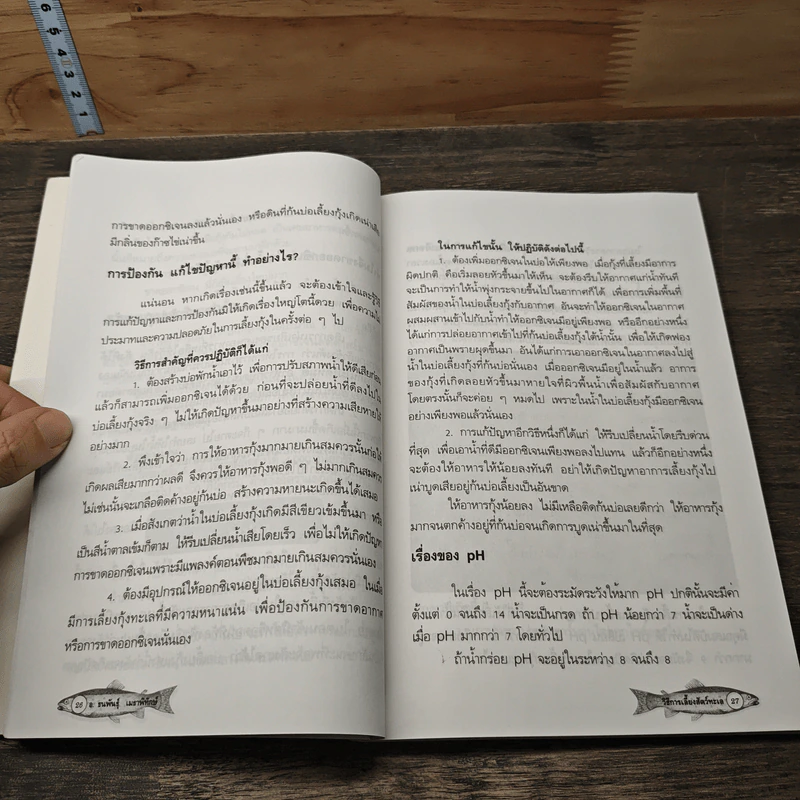 6
5
4
3
2
1
การขาดออกซิเจนลงแล้วนั่นเอง หรือดินที่ก้นบ่อเลี้ยงกุ้งเกิดเน่าเสีย
มีกลิ่นของก๊าซไข่เน่าขึ้น
การป้องกัน แก้ไขปัญหานี้ ทำอย่างไร?
แน่นอน หากเกิดเรื่องเช่นนี้ขึ้นแล้ว จะต้องเข้าใจและรู้วิธี
การแก้ปัญหาและการป้องกันมิให้เกิดเรื่องใหญ่โตนี้ด้วย เพื่อความไม่
ประมาทและความปลอดภัยในการเลี้ยงกุ้งในครั้งต่อ ๆ ไป
วิธีการสำคัญที่ควรปฏิบัติก็ได้แก่
1. ต้องสร้างบ่อพักน้ำเอาไว้ เพื่อการปรับสภาพน้ำให้ดีเสียก่อน
แล้วก็สามารถเพิ่มออกซิเจนได้ด้วย ก่อนที่จะปล่อยน้ำที่ดีลงไปใน
บ่อเลี้ยงกุ้งจริง ๆ ไม่ให้เกิดปัญหาขึ้นมาอย่างที่สร้างความเสียหายให้
อย่างมาก
2. พึงเข้าใจว่า การให้อาหารกุ้งมากมายเกินสมควรนั้นก่อให้
เกิดผลเสียมากกว่าผลดี จึงควรให้อาหารกุ้งพอดี ๆ ไม่มากเกินสมควร
ไม่เช่นนั้นจะเกลือติดค้างอยู่ก้นบ่อ สร้างความหายนะเกิดขึ้นได้เสมอ
3. เมื่อสังเกตว่าน้ำในบ่อเลี้ยงกุ้งเกิดมีสีเขียวเข้มขึ้นมา หรือ
เป็นสีน้ำตาลเข้มก็ตาม ให้รีบเปลี่ยนน้ำเสียโดยเร็ว เพื่อไม่ให้เกิดปัญหา
การขาดออกซิเจนเพราะมีแพลงค์ตอนพืชมากมายเกินสมควรนั่นเอง
4. ต้องมีอุปกรณ์ให้ออกซิเจนอยู่ในบ่อเลี้ยงกุ้งเสมอ ในเมื่อ
มีการเลี้ยงกุ้งทะเลที่มีความหนาแน่น เพื่อป้องกันการขาดอากาศ
หรือการขาดออกซิเจนนั่นเอง
26 อ. ธนพันธุ์ เมธาพิทักษ์
ในการแก้ไขนั้น ให้ปฏิบัติดังต่อไปนี้
1. ต้องเพิ่มออกซิเจนในบ่อให้เพียงพอ เมื่อกุ้งที่เลี้ยงมีอาการ
ผิดปกติ คือเริ่มลอยหัวขึ้นมาให้เห็น จะต้องรีบให้อากาศแก่น้ำทันที
จะเป็นการทำให้น้ำพุ่งกระจายขึ้นไปในอากาศก็ได้ เพื่อการเพิ่มพื้นที่
สัมผัสของน้ำในบ่อเลี้ยงกุ้งกับอากาศ อันจะทำให้ออกซิเจนในอากาศ
ผสมผสานเข้าไปกับน้ำทำให้ออกซิเจนมีอยู่เพียงพอ หรืออีกอย่างหนึ่ง
ได้แก่การปล่อยอากาศเข้าไปที่ก้นบ่อเลี้ยงกุ้งใต้น้ำนั้น เพื่อให้เกิดฟอง
อากาศเป็นพรายผุดขึ้นมา อันได้แก่การเอาออกซิเจนในอากาศลงไปสู่
น้ำในบ่อเลี้ยงกุ้งที่ก้นบ่อนั่นเอง เมื่อออกซิเจนมีอยู่ในน้ำแล้ว อาการ
ของกุ้งที่เกิดลอยหัวขึ้นมาหายใจที่ผิวพื้นน้ำเพื่อสัมผัสกับอากาศ
โดยตรงนั้นก็จะค่อย ๆ หมดไป เพราะในน้ำในบ่อเลี้ยงกุ้งมีออกซิเจน
อย่างเพียงพอแล้วนั่นเอง
2. การแก้ปัญหาอีกวิธีหนึ่งก็ได้แก่ ให้รีบเปลี่ยนน้ำโดยรีบด่วน
ที่สุด เพื่อเอาน้ำที่ดีมีออกซิเจนเพียงพอลงไปแทน แล้วก็อีกอย่างหนึ่ง
จะต้องให้อาหารให้น้อยลงทันที อย่าให้เกิดปัญหาอาการเลี้ยงกุ้งไป
เน่าบูดเสียอยู่ก้นบ่อเลี้ยงเป็นอันขาด
ให้อาหารกุ้งน้อยลง ไม่มีเหลือติดก้นบ่อเลยดีกว่า ให้อาหารกุ้ง
มากจนตกค้างอยู่ที่ก้นบ่อจนเกิดการบูดเน่าขึ้นมาในที่สุด
เรื่องของ pH
ในเรื่อง pH นี้จะต้องระมัดระวังให้มาก pH ปกตินั้นจะมีค่า
ตั้งแต่ 0 จนถึง 14 น้ำจะเป็นกรด ถ้า pH น้อยกว่า 7 น้ำจะเป็นด่าง
เมื่อ pH มากกว่า 7 โดยทั่วไป
ถ้าน้ำกร่อย pH จะอยู่ในระหว่าง 8 จนถึง 8
วิธีการเลี้ยงสัตว์ทะเล 27